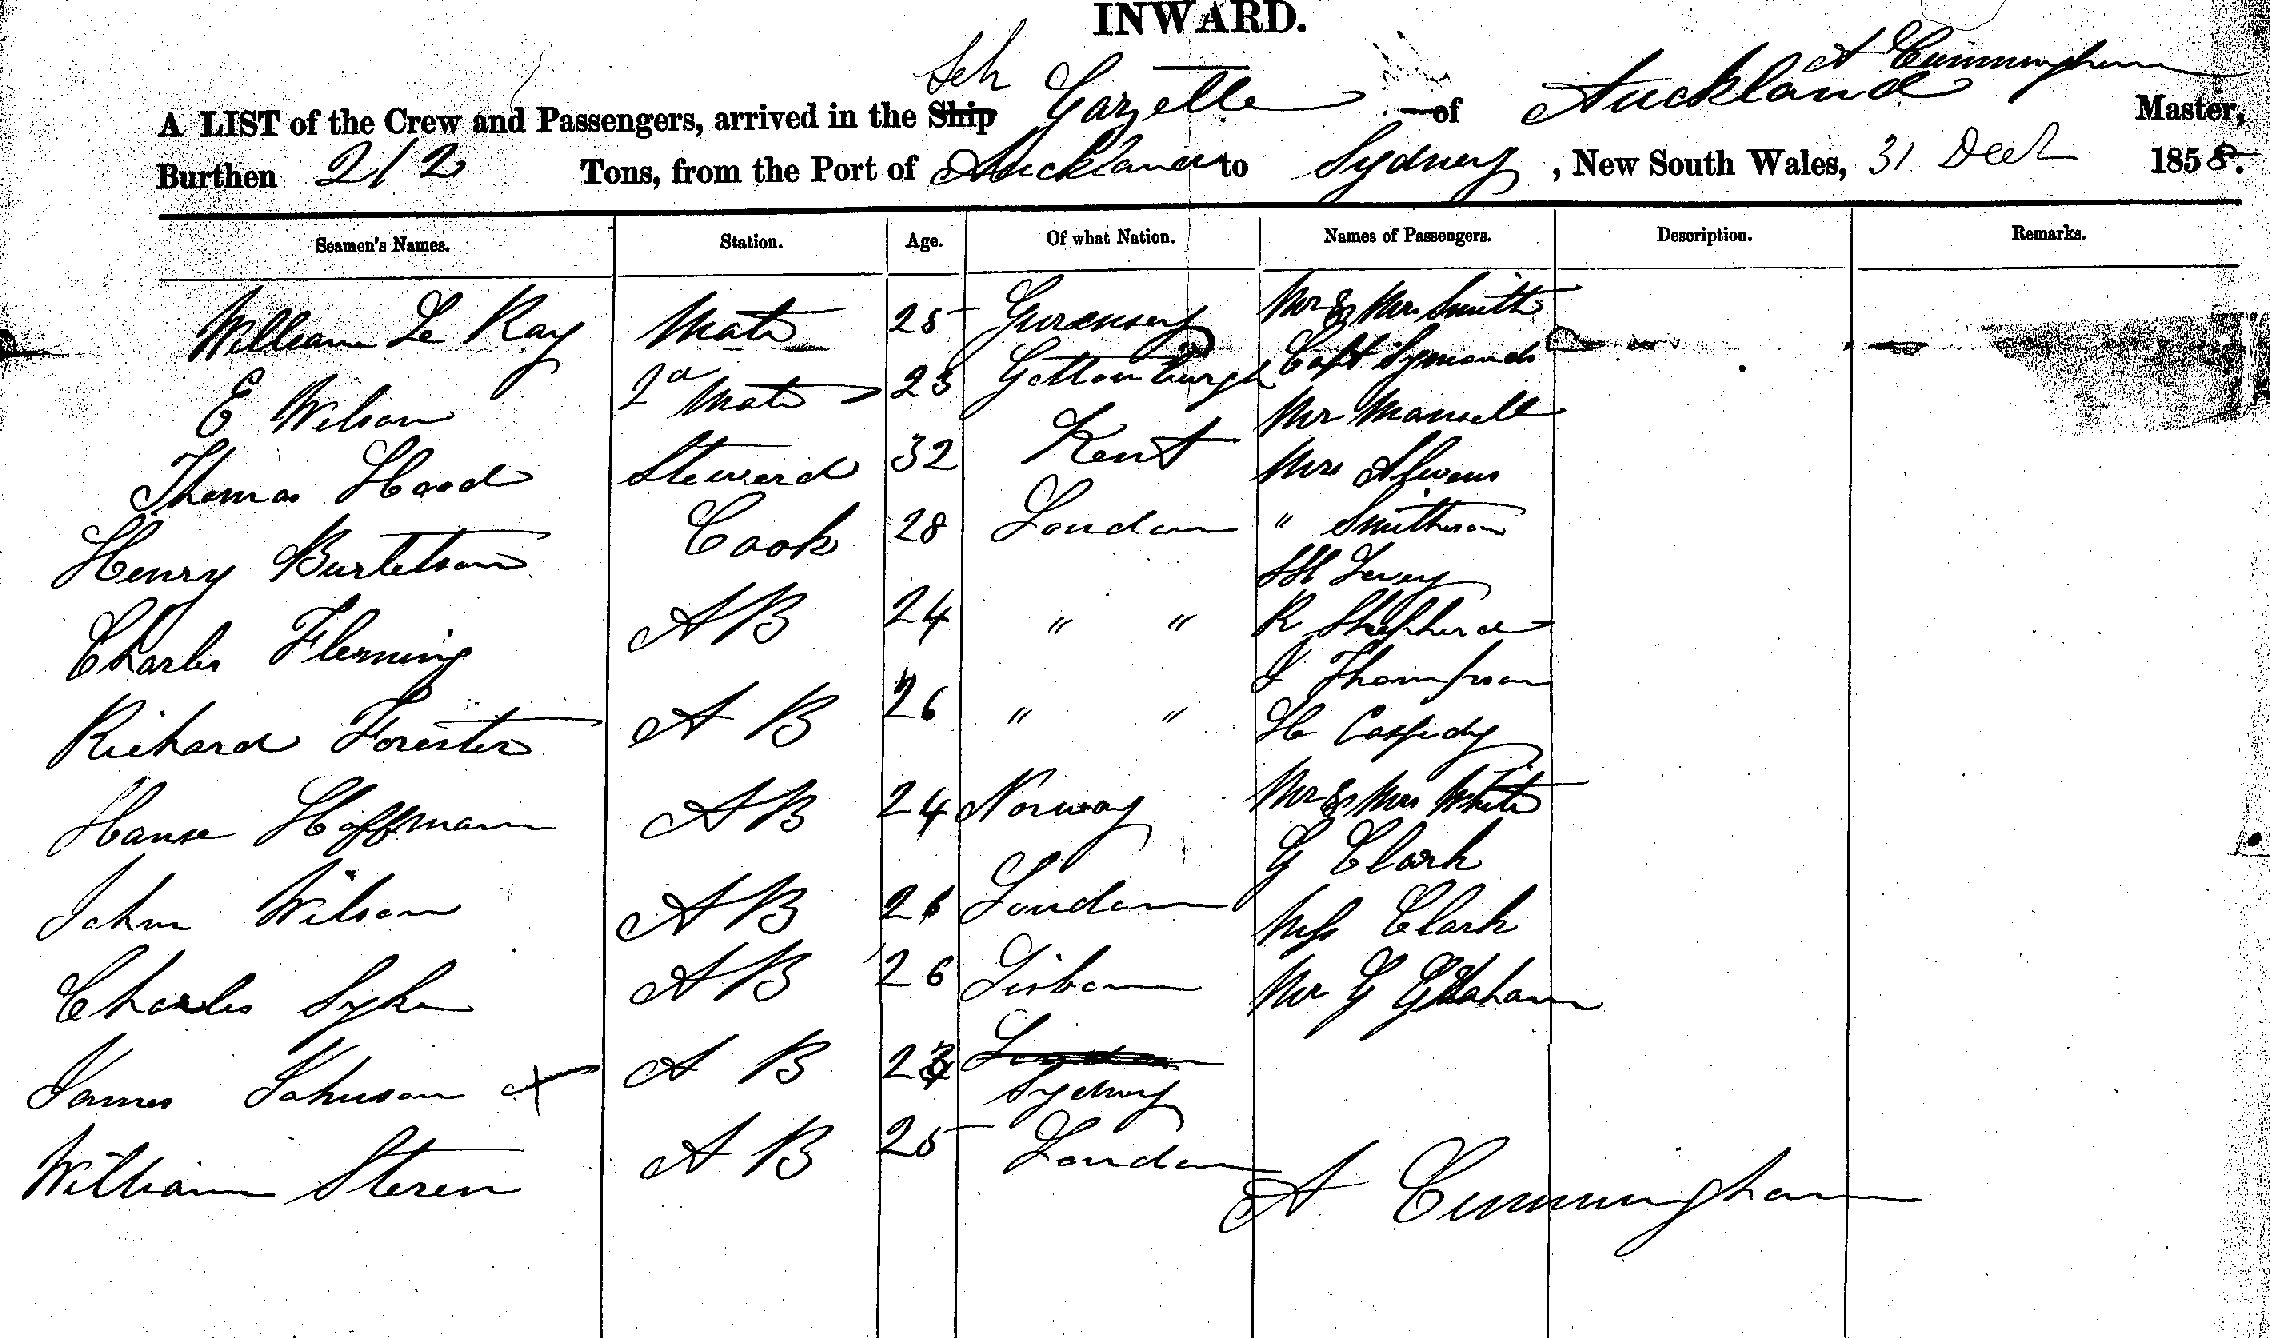 INWARD.
Sch
A Cunningham
A LIST of the Crew and Passengers, arrived in the Ship Gazelle of Auckland Master,
Burthen 212 Tons, from the Port of Auckland to Sydney, New South Wales, 31 Decr 1858.
Seamen's Names. Station. Age. Of what Nation. Names of Passengers. Description. Remarks.
William Le Ray Mate 25 Guernsey Mr & Mrs Smith
Capt Symonds
E Wilson 2d Mate 23 Gottenburgh
Mr Mansell
Thomas Hood Steward 32 Kent Mrs Stevens
Henry Burtetson Cook 28 London " Smitheson
Levey
Charles Fleming A B 24 " " R Shepherd
Thompson
Richard Forester A B 26 " " H Cassidy
Hanse Hoffmann A B 24 Norway Mr & Mrs White
G Clark
John Wilson A B 26 London Miss Clark
Charles Syke A B 26 Lisbon Mr G Graham
James Johnson x A B 23 Sydney
William Steven A B 25 London
A Cunningham